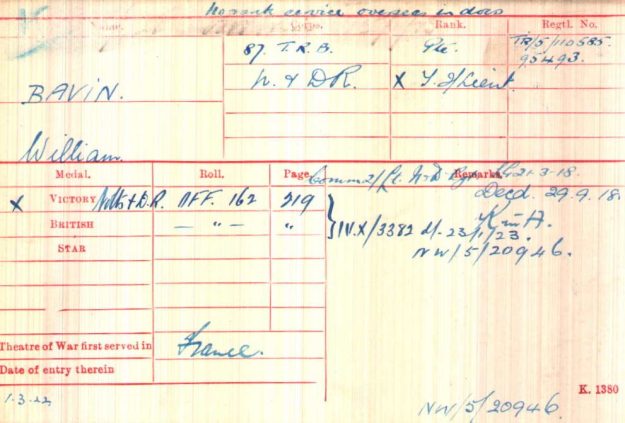 No rank service overseas in docs
Name. Corps. Rank. Regtl. No.
BAVIN.
William
87. T.R.B. Pte. TR/5/110585.
95493.
N. & D.R. X T. 2/Lieut.
Medal. Roll. Page. Remarks.
Comm 2/Lt. N & D Rgt 21-3-18.
X VICTORY Notts & D.R. OFF. 162 219 Decd. 29.9.18.
BRITISH — " — " K in A.
STAR } IV.X/3382 d/- 23/1/23.
NW/5/20946.
Theatre of War first served in France.
Date of entry therein
1-3-22 K. 1380
NW/5/20946.